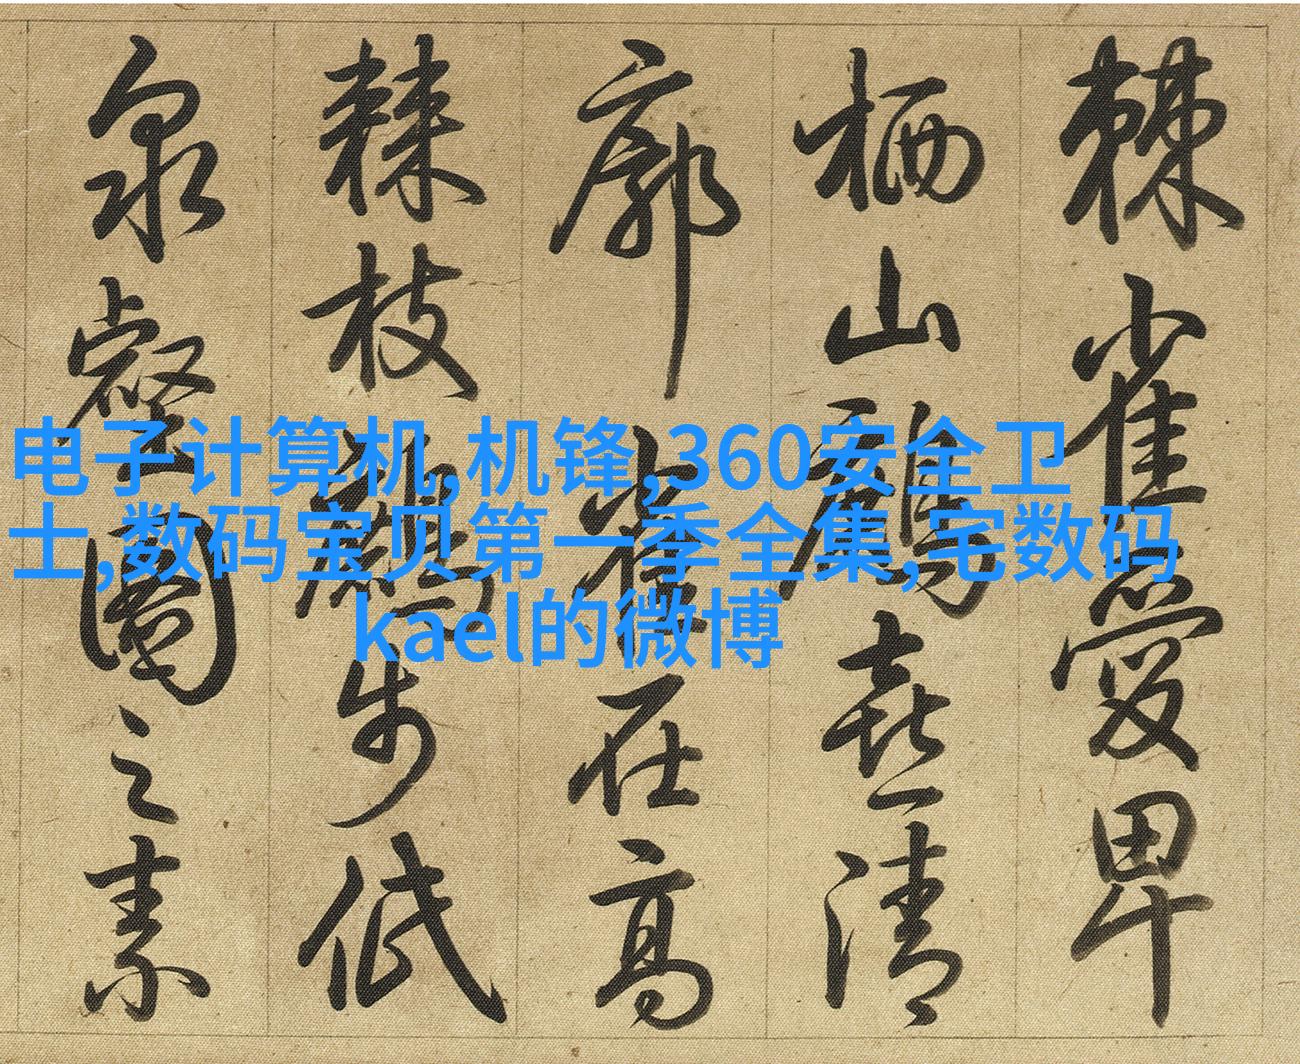 棘雀愛卑
栖山鷓喜清
廓
雀在高
棘枝鷄步低
泉壑園之素
电子计算机,机锋,360安全卫
士,数码宝贝第一季全集,宅数码
kael的微博